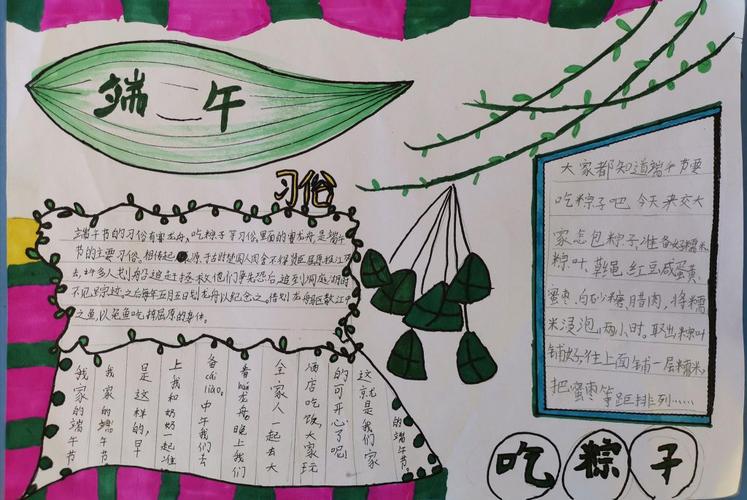 端午
习俗
端午节的习俗有赛龙舟,吃粽子等习俗,里面的赛龙舟是端午
节的主要习俗。相传起源于古时楚国人因舍不得贤臣屈原投江死
去,许多人划船追赶拯救他们争先恐后,追到洞庭湖时
不见踪迹。之后每年五月五日划龙舟以纪念之。借划龙舟驱散江中
之鱼,以免鱼吃掉屈原的身体。
我家的端午节
我家的端午节
是这样的,早
上我和奶奶一起准
备cái liào。中午我们去
看龙舟,晚上我们
全家人一起去大
酒店吃饭,大家玩
的可开心了呢!
这就是我们家
的端午节。
大家都知道端午节要
吃粽子吧,今天来交大
家怎包粽子,准备好糯米
粽叶、草绳、红豆咸蛋黄、
蜜枣、白砂糖、腊肉,将糯
米浸泡两小时。取出粽叶
铺好,往上面铺一层糯米,
把蜜枣等距排列……
吃粽子